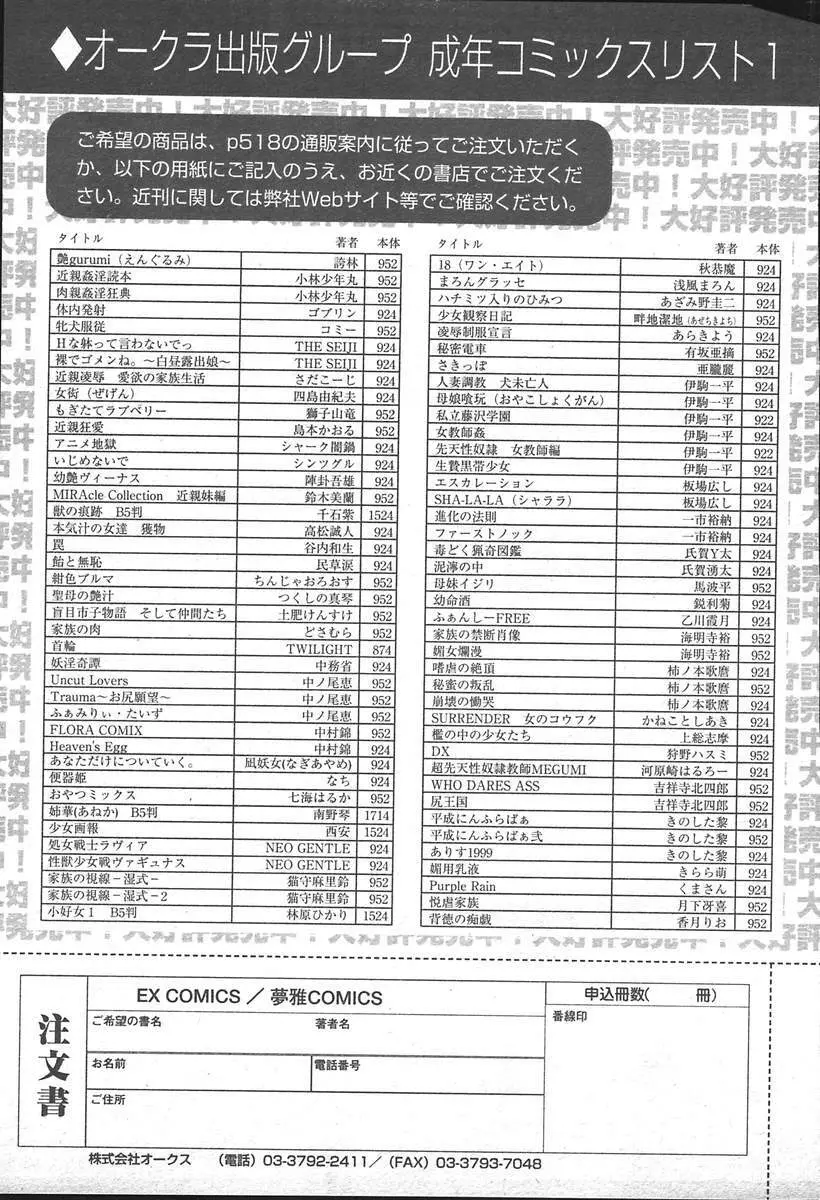 ◆オークラ出版グループ 成年コミックスリスト1
ご希望の商品は、p518の通販案内に従ってご注文いただく
か、以下の用紙にご記入のうえ、お近くの書店でご注文くだ
さい。近刊に関しては弊社Webサイト等でご確認ください。
タイトル 著者 本体
艶gurumi（えんぐるみ） 誇林 952
近親姦淫読本 小林少年丸 952
肉親姦淫狂典 小林少年丸 952
体内発射 ゴブリン 924
牝犬服従 コミー 952
Hな躾って言わないでっ THE SEIJI 924
裸でゴメンね。〜白昼露出娘〜 THE SEIJI 924
近親凌辱 愛欲の家族生活 さだこーじ 924
女衒（ぜげん） 四島由紀夫 924
もぎたてラブベリー 獅子山竜 952
近親狂愛 島本かおる 952
アニメ地獄 シャーク闇鍋 924
いじめないで シンツグル 924
幼艶ヴィーナス 陣卦吾雄 924
MIRAcle Collection 近親妹編 鈴木美蘭 952
獣の痕跡 B5判 千石紫 1524
本気汁の女達 獲物 高松誠人 924
罠 谷内和生 924
飴と無恥 民草涙 924
紺色ブルマ ちんじゃおろおす 952
聖母の艶汁 つくしの真琴 952
盲目市子物語 そして仲間たち 土肥けんすけ 952
家族の肉 どさむら 952
首輪 TWILIGHT 874
妖淫奇譚 中務省 924
Uncut Lovers 中ノ尾恵 952
Trauma〜お尻願望〜 中ノ尾恵 952
ふぁみりぃ・たいず 中ノ尾恵 952
FLORA COMIX 中村錦 952
Heaven's Egg 中村錦 924
あなただけについていく。 凪妖女(なぎあやめ) 924
便器姫 なち 924
おやつミックス 七海はるか 952
姉華(あねか) B5判 南野琴 1714
少女画報 西安 1524
処女戦士ラヴィア NEO GENTLE 924
性獣少女戦ヴァギュナス NEO GENTLE 924
家族の視線－湿式－ 猫守麻里鈴 952
家族の視線－湿式－2 猫守麻里鈴 952
小好女1 B5判 林原ひかり 1524
タイトル 著者 本体
18（ワン・エイト） 秋恭魔 924
まろんグラッセ 浅風まろん 924
ハチミツ入りのひみつ あざみ野圭二 924
少女観察日記 畔地潔地(あぜちきよち) 952
凌辱制服宣言 あらきよう 924
秘密電車 有坂亜摘 952
さきっぽ 亜朧麗 924
人妻調教 犬未亡人 伊駒一平 924
母娘喰玩（おやこしょくがん） 伊駒一平 924
私立藤沢学園 伊駒一平 922
女教師姦 伊駒一平 924
先天性奴隷 女教師編 伊駒一平 922
生贄黒帯少女 伊駒一平 924
エスカレーション 板場広し 924
SHA-LA-LA（シャララ） 板場広し 924
進化の法則 一市裕納 924
ファーストノック 一市裕納 924
毒どく猟奇図鑑 氏賀Y太 924
泥濘の中 氏賀湧太 924
母妹イジリ 馬波平 952
幼命酒 鋭利菊 924
ふぁんしーFREE 乙川霞月 924
家族の禁断肖像 海明寺裕 952
媚女爛漫 海明寺裕 952
嗜虐の絶頂 柿ノ本歌麿 924
秘蜜の叛乱 柿ノ本歌麿 952
崩壊の慟哭 柿ノ本歌麿 924
SURRENDER 女のコウフク かねことしあき 924
檻の中の少女たち 上総志摩 924
DX 狩野ハスミ 952
超先天性奴隷教師MEGUMI 河原崎はるろー 924
WHO DARES ASS 吉祥寺北四郎 952
尻王国 吉祥寺北四郎 952
平成にんふらばぁ きのした黎 924
平成にんふらばぁ弐 きのした黎 952
ありす1999 きのした黎 924
媚用乳液 きらら萌 924
Purple Rain くまさん 924
悦虐家族 月下冴喜 952
背徳の痴戯 香月りお 952
注文書
EX COMICS ／ 夢雅COMICS
申込冊数( 冊)
ご希望の書名 著者名
番線印
お名前 電話番号
ご住所
株式会社オークス （電話）03-3792-2411／（FAX）03-3793-7048
大好評発売中！